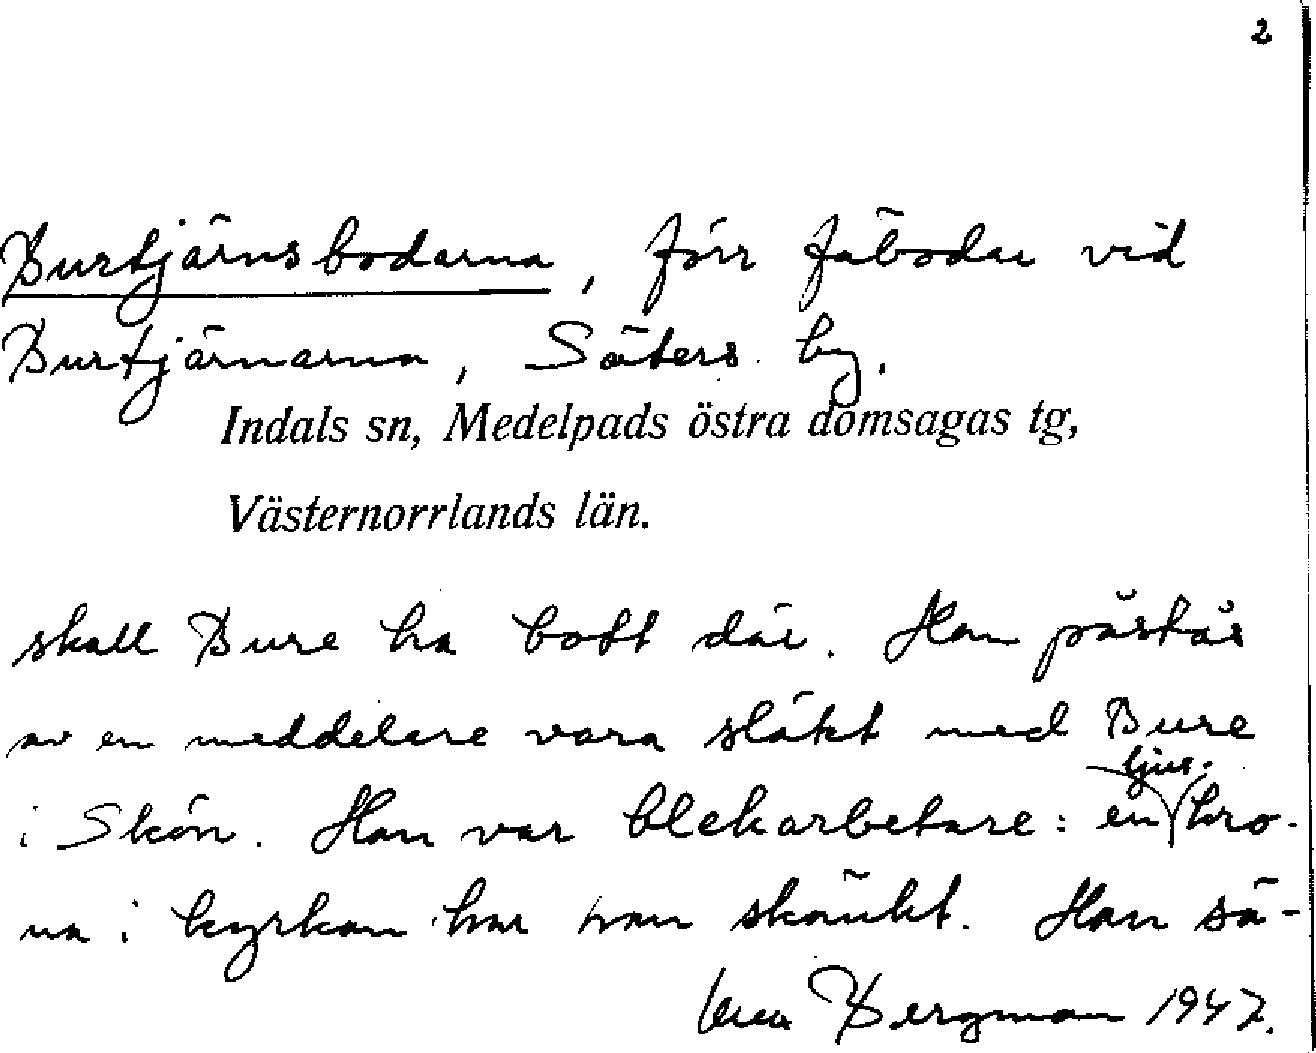 2
Burtjärnsbodarna, förr fäbodar vid
Burtjärnarna, Säters by.
Indals sn, Medelpads östra domsagas tg,
Västernorrlands län.
skall Bure ha bott där. Han påstås
av en meddelare vara släkt med Bure
ljus-
i Skön. Han var blekarbetare: en kro-
na i kyrkan har han skänkt. Han sä-
Bergman 1947.